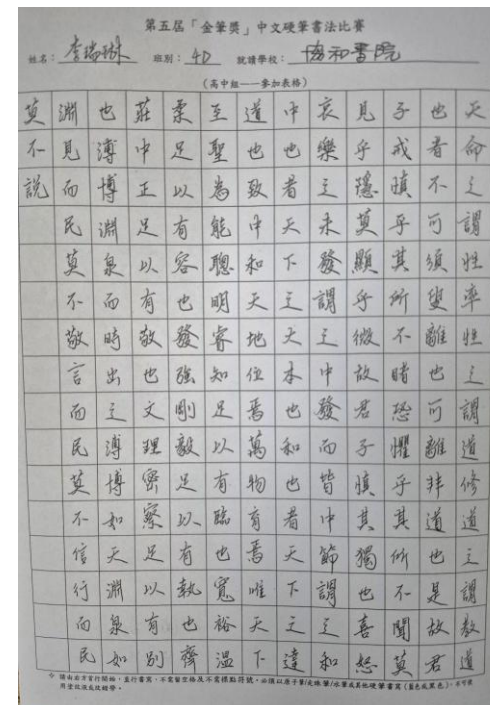 第五屆「金筆獎」中文硬筆書法比賽
姓名：李瑞琳 班別：4D 就讀學校：協和書院
（高中組——參加表格）
天命之謂性率性之謂道修道之謂教道
也者不可須臾離也可離非道也是故君
子戒慎乎其所不睹恐懼乎其所不聞莫
見乎隱莫顯乎微故君子慎其獨也喜怒
哀樂之未發謂之中發而皆中節謂之和
中也者天下之大本也和也者天下之達
道也致中和天地位焉萬物育焉唯天下
至聖為能聰明睿知足以有臨也寬裕溫
柔足以有容也發強剛毅足以有執也齊
莊中正足以有敬也文理密察足以有別
也溥博淵泉而時出之溥博如天淵泉如
淵見而民莫不敬言而民莫不信行而民
莫不說
◇ 請由右方首行開始，直行書寫，不需留空格及不需標點符號。必須以原子筆/走珠筆/水筆或其他硬筆書寫（藍色或黑色），不可使
用塗改液或改錯帶。